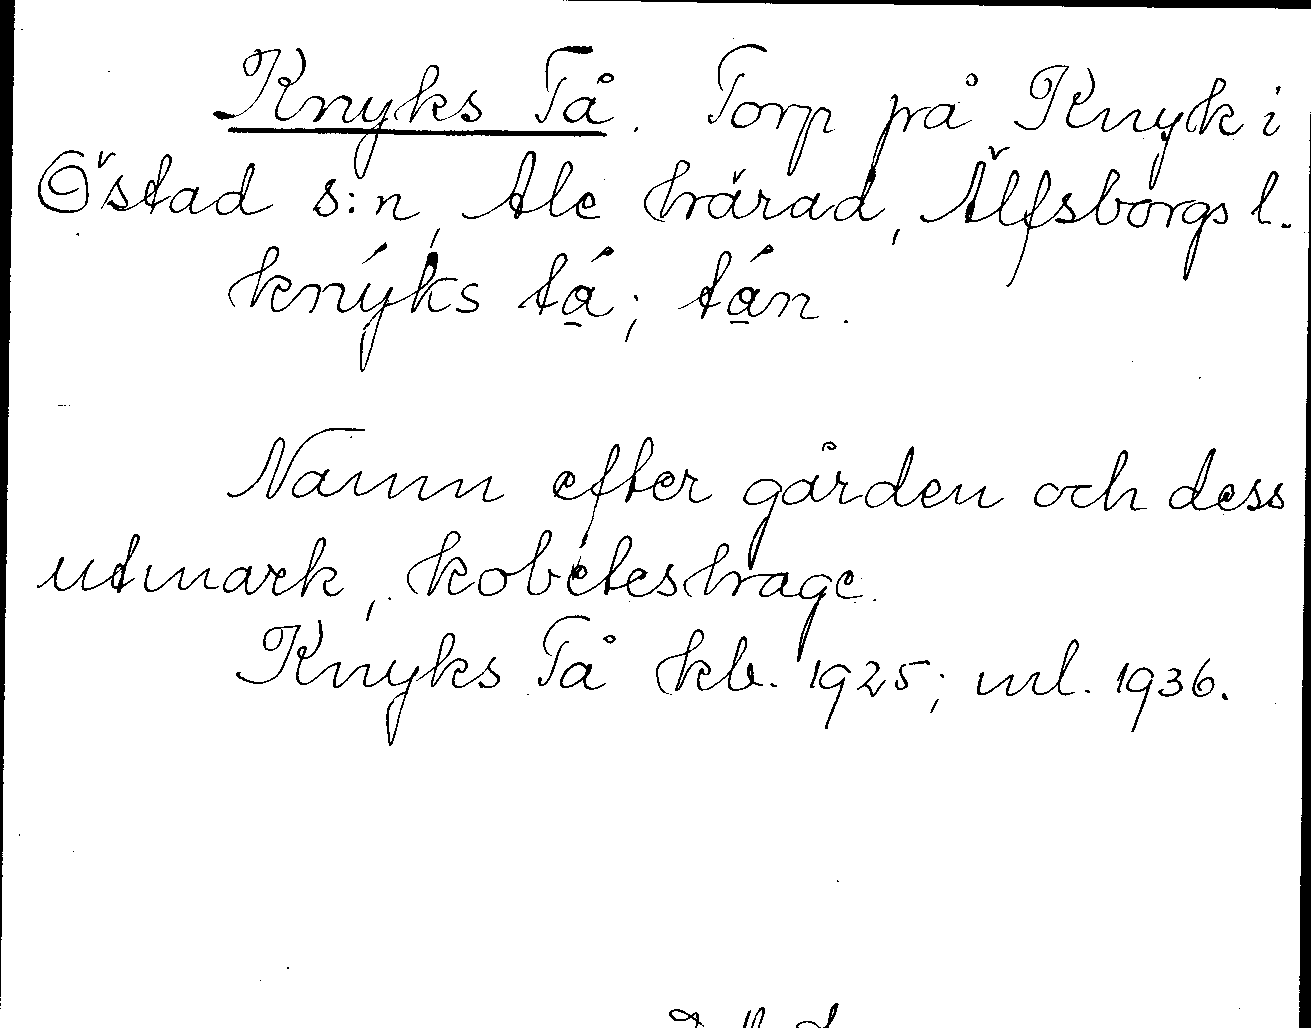 Knyks Tå. Torp på Knyk i
Östad s:n, Ale härad, Älfsborgs l.
knýks tá̱; tá̱n.
Namn efter gården och dess
utmark, kobeteshage.
Knyks Tå kb. 1925; ml. 1936.